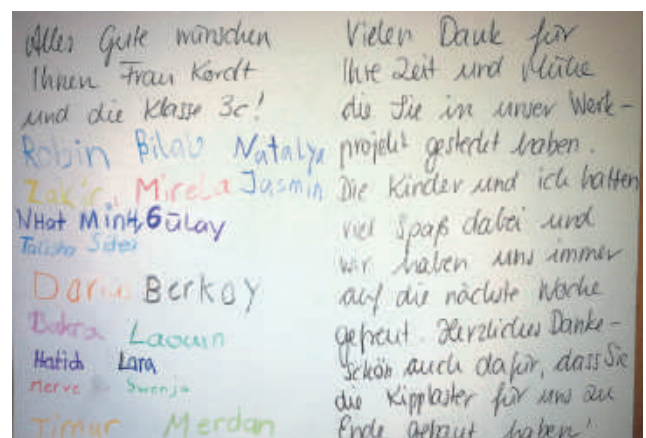 Alles Gute wünschen
Ihnen Frau Kordt
und die Klasse 3c!
Robin Bilal Natalya
Zakir, Mirela Jasmin
NHat MinH, Gülay
Talisha
Daria Berkay
Lara
Merve Swenja
Timur Merdan
Vielen Dank für
Ihre Zeit und Mühe
die Sie in unser Werk-
projekt gesteckt haben.
Die Kinder und ich hatten
viel Spaß dabei und
wir haben uns immer
auf die nächste Woche
gefreut. Herzliches Danke-
schön auch dafür, dass Sie
die Kipplaster für uns zu
Ende gebaut haben!